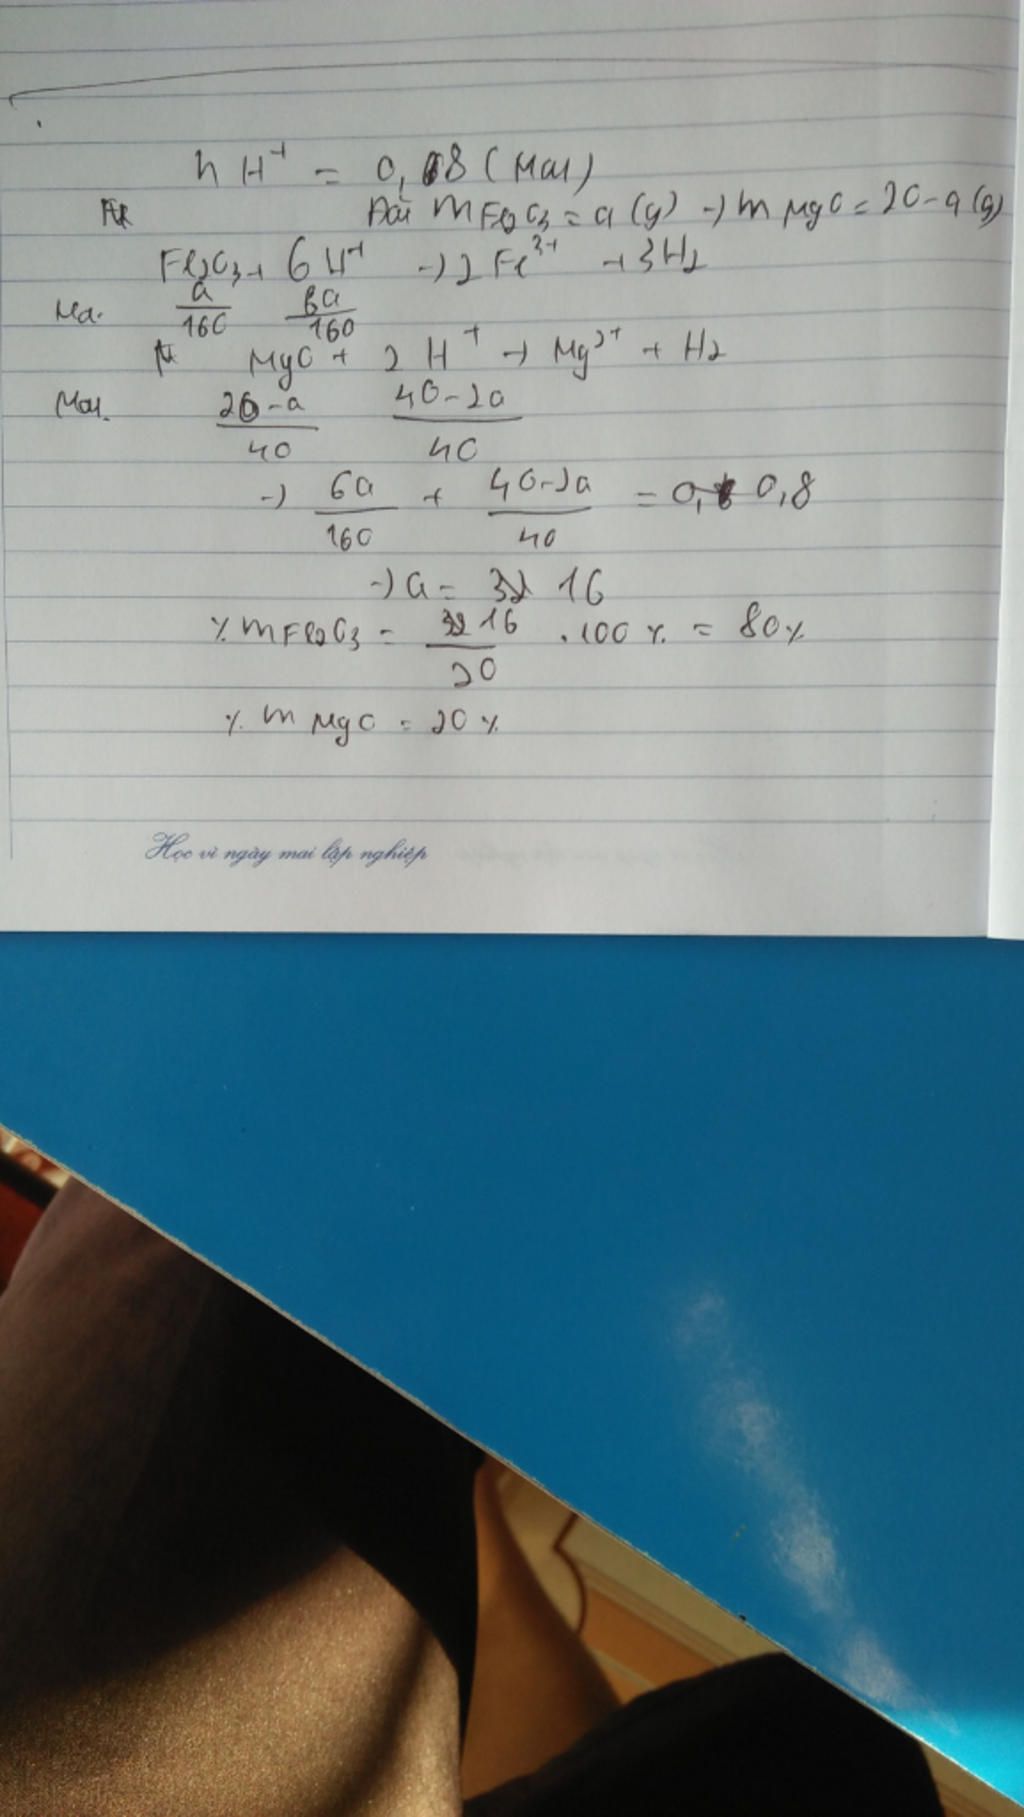 n H⁺ = 0,8 (Mol)
Đặt m Fe2O3 = a (g) → m MgO = 20-a (g)
Fe2O3 + 6 H⁺ → 2 Fe³⁺ + 3H2
a/160 6a/160
MgO + 2 H⁺ → Mg²⁺ + H2
Mol. 20-a/40 40-2a/40
→ 6a/160 + 40-2a/40 = 0,8
→ a = 16
% m Fe2O3 = 16/20 . 100 % = 80 %
% m MgO = 20 %
Học vì ngày mai lập nghiệp